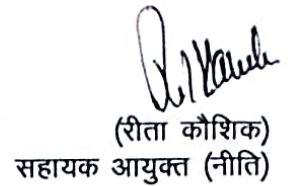 (रीता कौशिक)
सहायक आयुक्त (नीति)